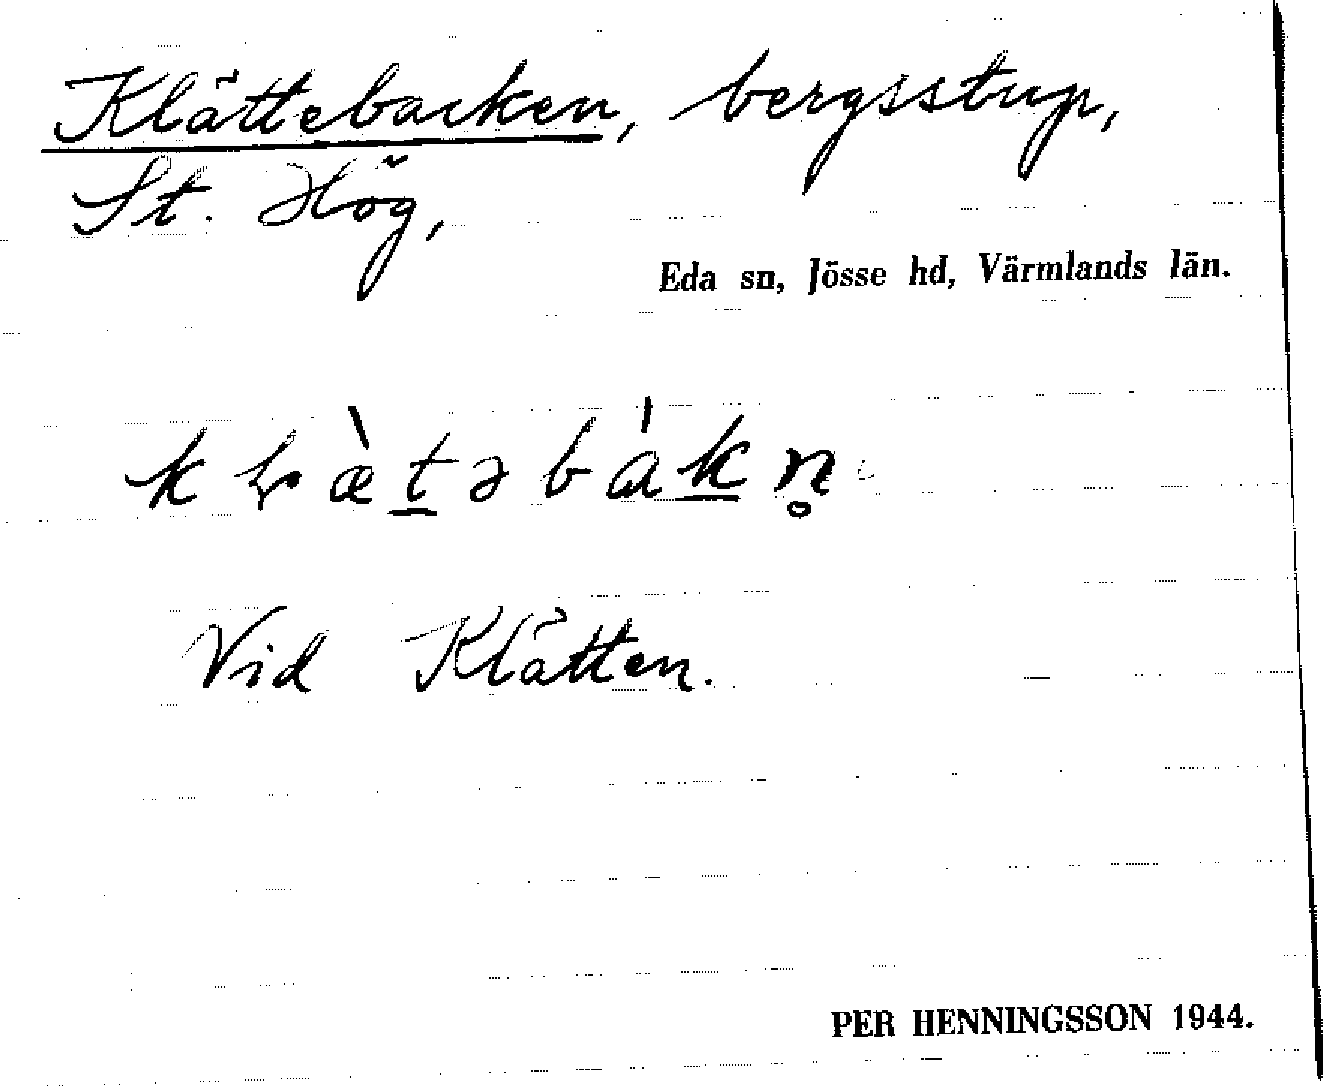 Klättebacken, bergsstup,
St. Hög,
Eda sn, Jösse hd, Värmlands län.
Vid Klätten.
PER HENNINGSSON 1944.